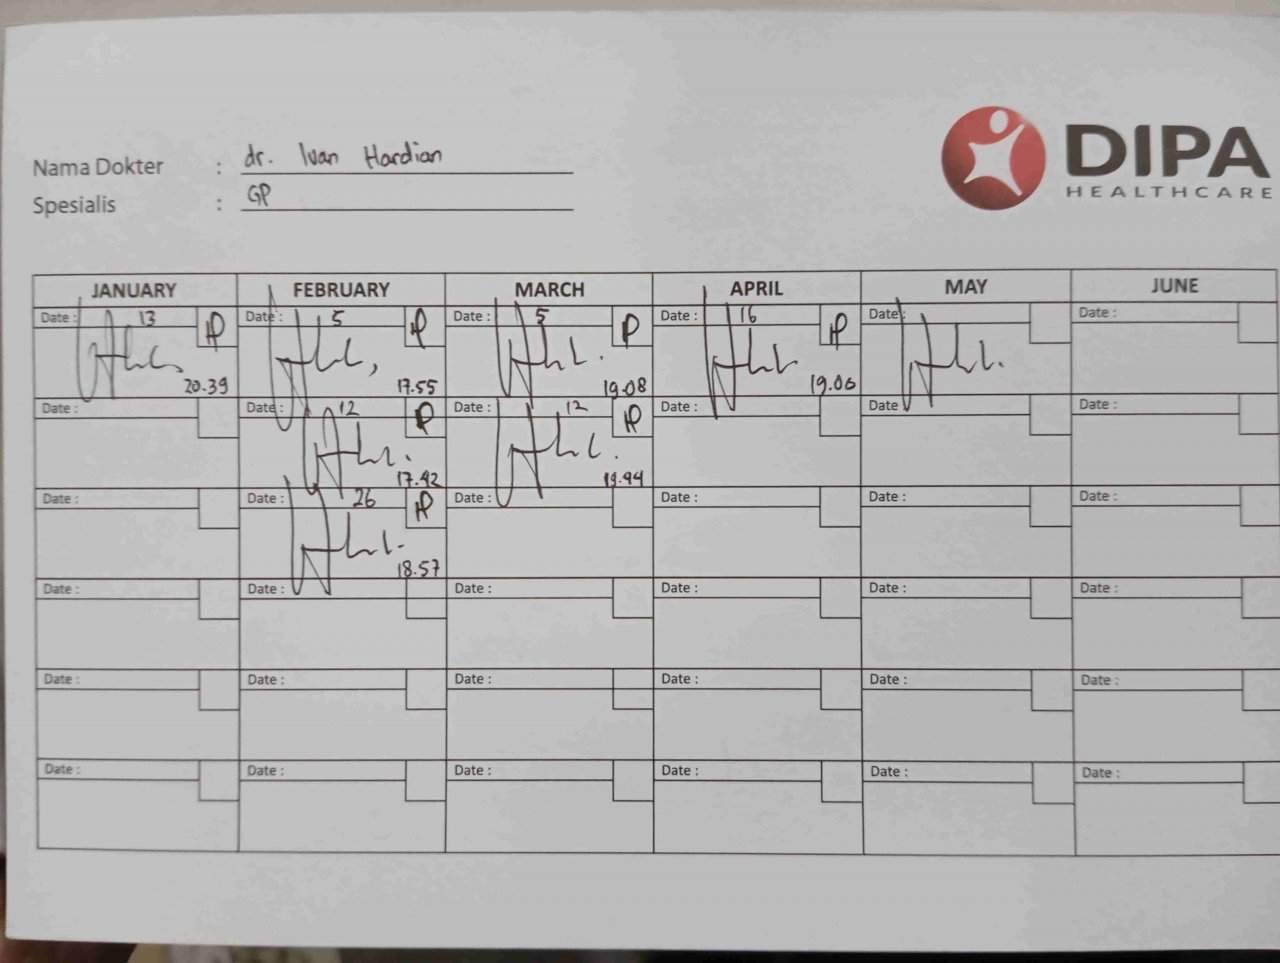 DIPA
HEALTHCARE
Nama Dokter : dr. Ivan Hardian
Spesialis : GP
JANUARY FEBRUARY MARCH APRIL MAY JUNE
Date : 13 Date : 5 Date : 5 Date : 16 Date : Date :
20.39 17.55 19.08 19.06
Date : Date : 12 Date : 12 Date : Date : Date :
17.42 19.44
Date : Date : 26 Date : Date : Date : Date :
18.57
Date : Date : Date : Date : Date : Date :
Date : Date : Date : Date : Date : Date :
Date : Date : Date : Date : Date : Date :